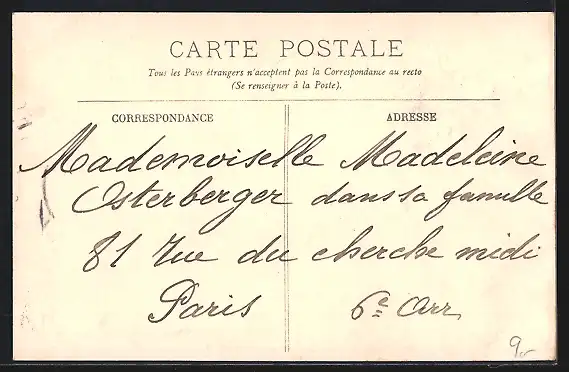 CARTE POSTALE
Tous les Pays étrangers n'acceptent pas la Correspondance au recto
(Se renseigner à la Poste).
CORRESPONDANCE ADRESSE
Mademoiselle Madeleine
Osterberger dans sa famille
81 rue du cherche midi
Paris 6e Arr